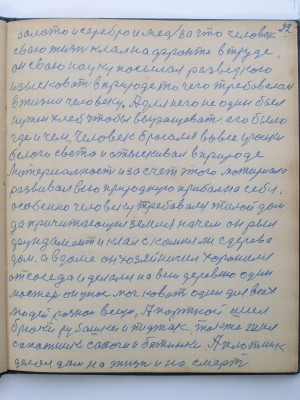 32
золото и серебро и мед/ за что человек
свою жизнь клал на фронте в труде,
он свою науку посылал разведкого
извлековать в природе то чего требовалося
в жизни человеку. А для него не один был
нужен хлеб чтобы выращевать его было
где и чем, Человек бросался во все уголки
белого света и отыскивал в природе
Материалность и за счет этого
развивал всю природную прибыль на себя,
особенно человеку требовался жилой дом
да причитающая земля на чем он рыл
фундамент и клал с камнем с дерева
дом. а в доме он хозяйничил хоронился
от соседа и делал на всю деревню один
мастер он умог ковать один для всех
людей разною вещь, А портной шил
брюки рубашки и пиджак, тоже шил
сапожник сапоги и ботинки А плотник
делал дом на жизнь и на смерть